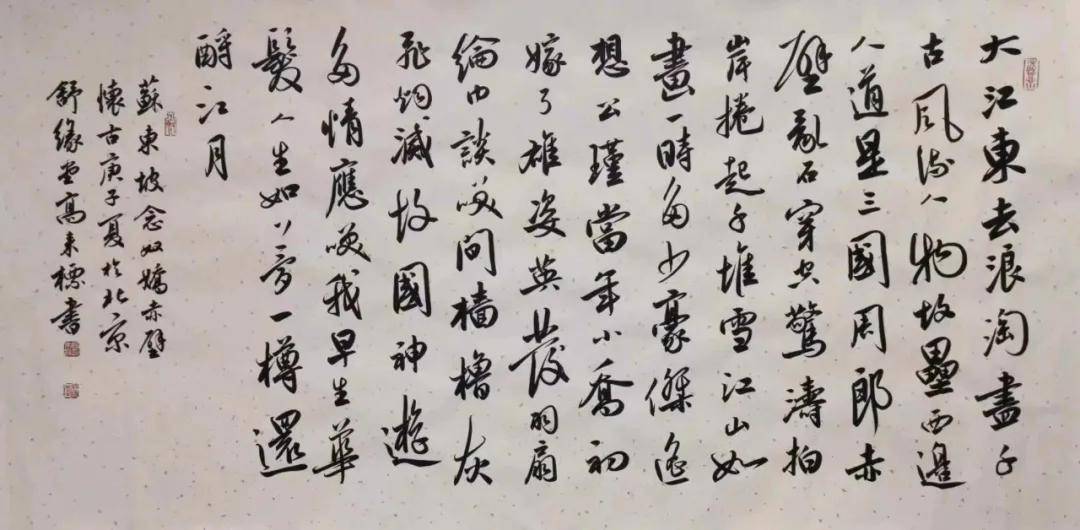 大江東去浪淘盡千
古風流人物故壘西邊
人道是三國周郎赤
壁亂石穿空驚濤拍
岸捲起千堆雪江山如
畫一時多少豪傑遙
想公瑾當年小喬初
嫁了雄姿英發羽扇
綸巾談笑間檣櫓灰
飛烟滅故國神遊
多情應笑我早生華
髮人生如夢一樽還
酹江月
蘇東坡念奴嬌赤壁
懷古庚子夏於北京
舒緣堂高来標書